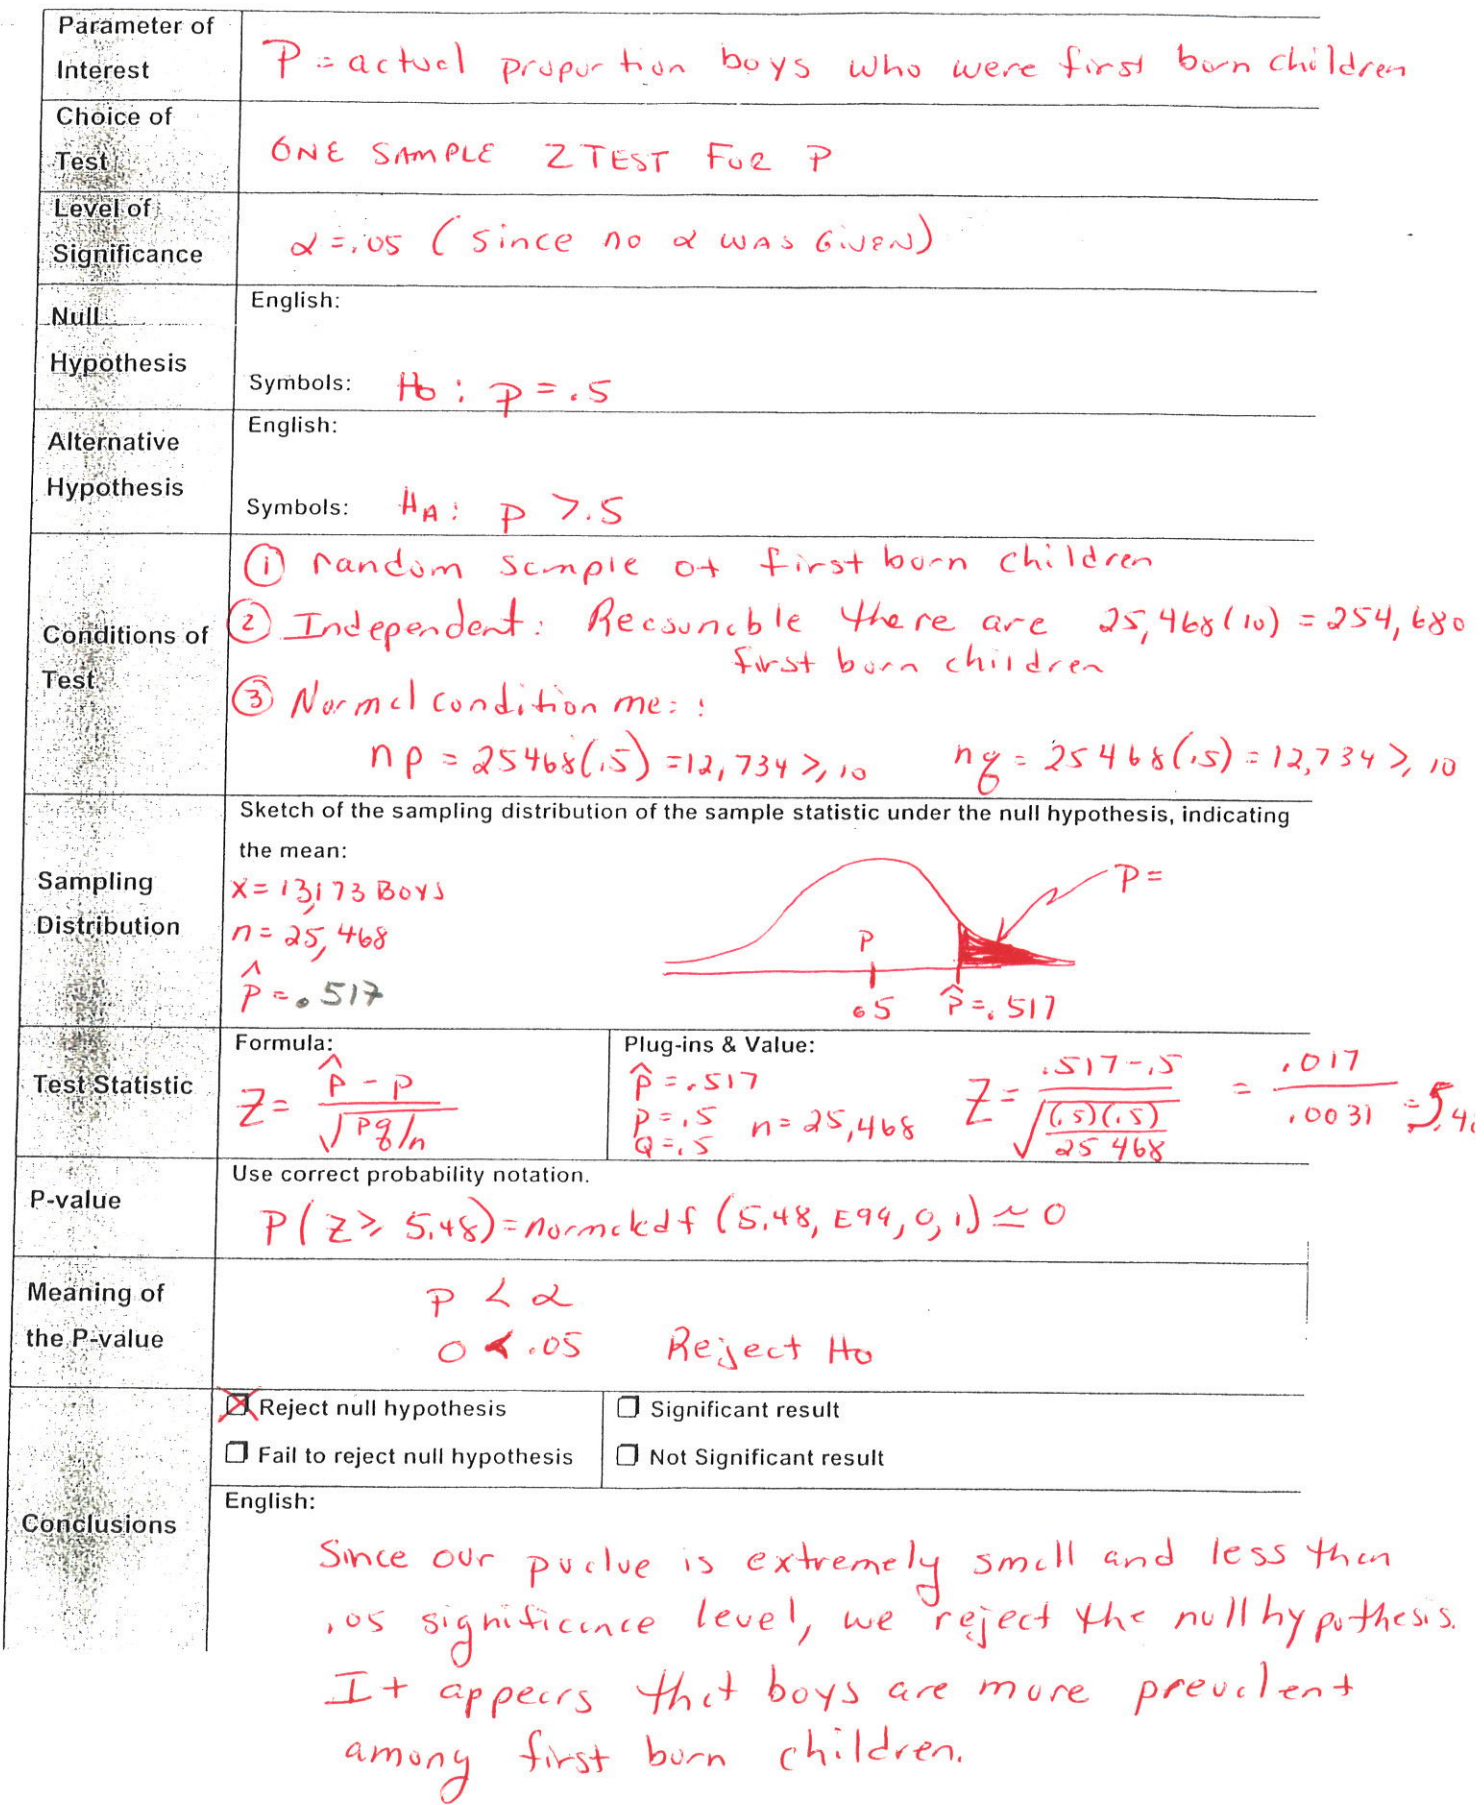 Parameter of Interest
P = actual proportion boys who were first born children
Choice of Test
ONE SAMPLE Z TEST FOR P
Level of Significance
α = .05 (since no α WAS GIVEN)
Null Hypothesis
English:
Symbols: Ho : p = .5
Alternative Hypothesis
English:
Symbols: HA : p > .5
Conditions of Test
① random sample of first born children
② Independent: Reasonable there are 25,468(10) = 254,680
first born children
③ Normal condition met:
np = 25468(.5) = 12,734 ≥ 10 nq = 25468(.5) = 12,734 ≥ 10
Sampling Distribution
Sketch of the sampling distribution of the sample statistic under the null hypothesis, indicating
the mean:
x = 13,173 BOYS
n = 25,468
p̂ = .517
P =
P
.5 p̂ = .517
Test Statistic
Formula:
Z = p̂ - p / √pq/n
Plug-ins & Value:
p̂ = .517
p = .5 n = 25,468
Q = .5
Z = .517 - .5 / √(.5)(.5)/25468 = .017 / .0031 = 5.4
P-value
Use correct probability notation.
P(Z ≥ 5.48) = normalcdf (5.48, E99, 0, 1) ≃ 0
Meaning of the P-value
P < α
0 < .05 Reject Ho
Conclusions
Reject null hypothesis
Fail to reject null hypothesis
Significant result
Not Significant result
English:
Since our pvalue is extremely small and less than
.05 significance level, we reject the null hypothesis.
It appears that boys are more prevalent
among first born children.